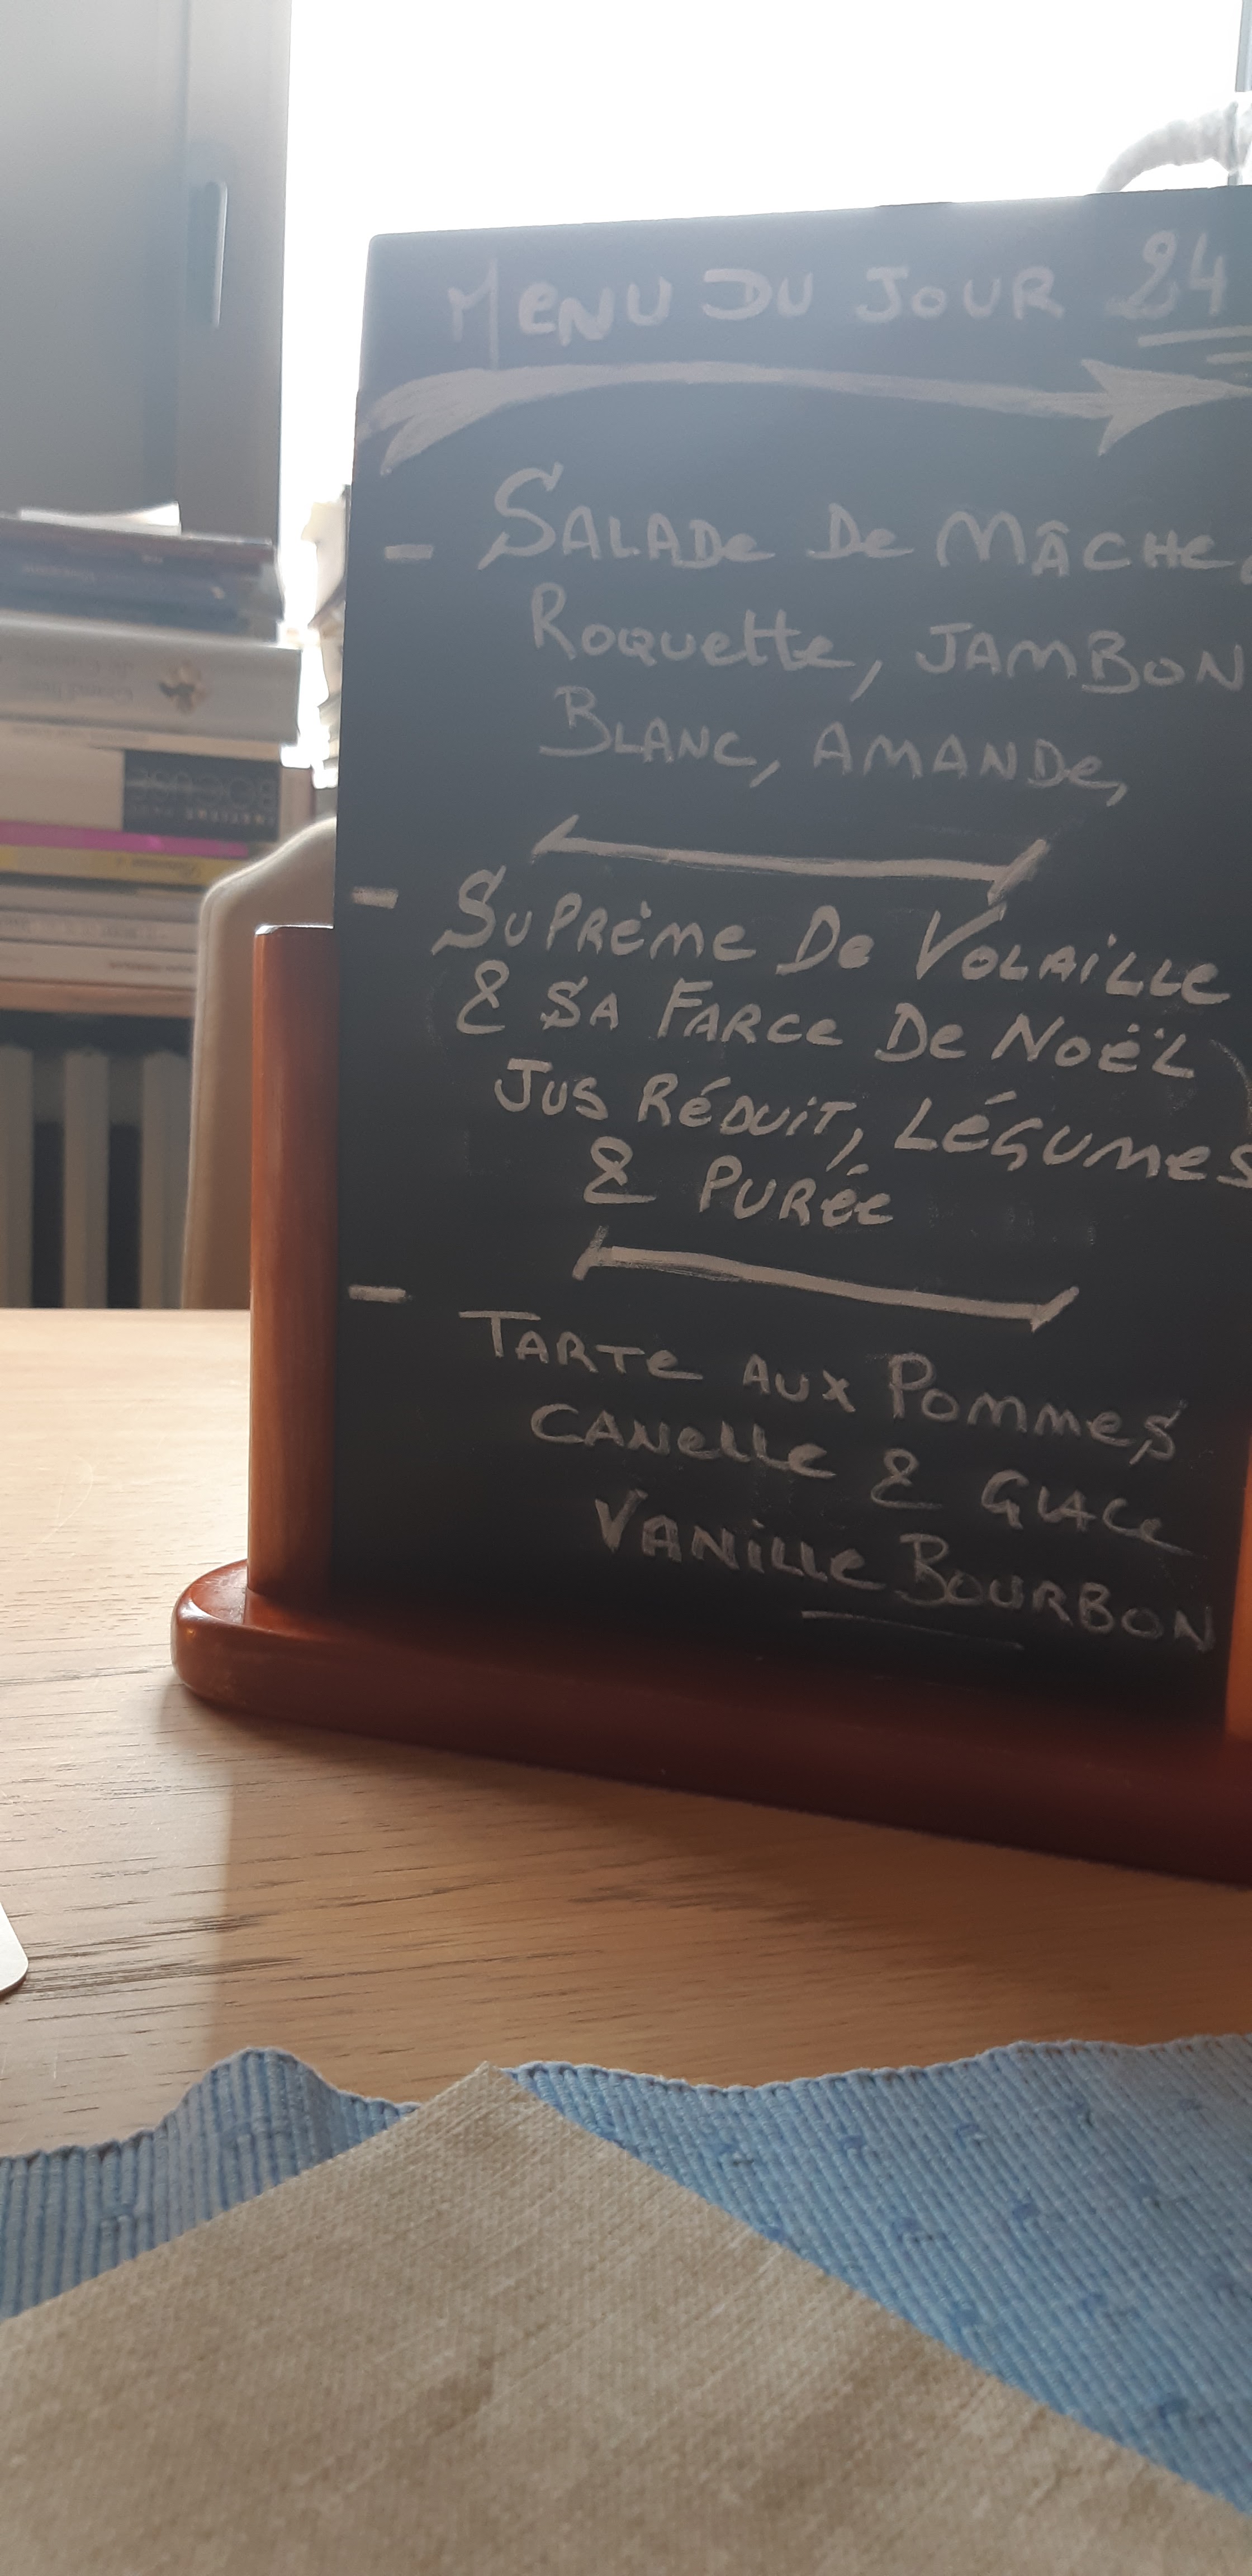 MENU DU JOUR 24
- SALADE DE MÂCHE,
ROQUETTE, JAMBON
BLANC, AMANDE,
- SUPRÈME DE VOLAILLE
& SA FARCE DE NOËL
JUS RÉDUIT, LÉGUMES
& PURÉE
- TARTE AUX POMMES
CANELLE & GLACE
VANILLE BOURBON